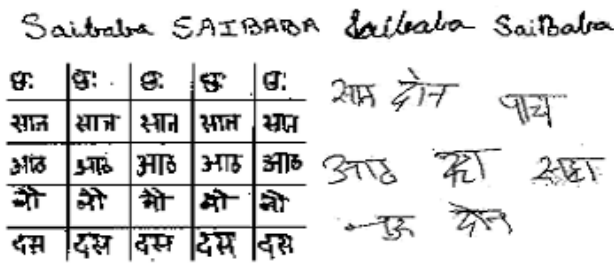 Saibaba SAIBABA Saibaba SaiBaba
छः छः छः छः छः
सात सात सात सात सात
आठ आठ आठ आठ आठ
नौ नौ नौ नौ नौ
दस दस दस दस दस
सात दोन पाच
आठ सहा
दोन